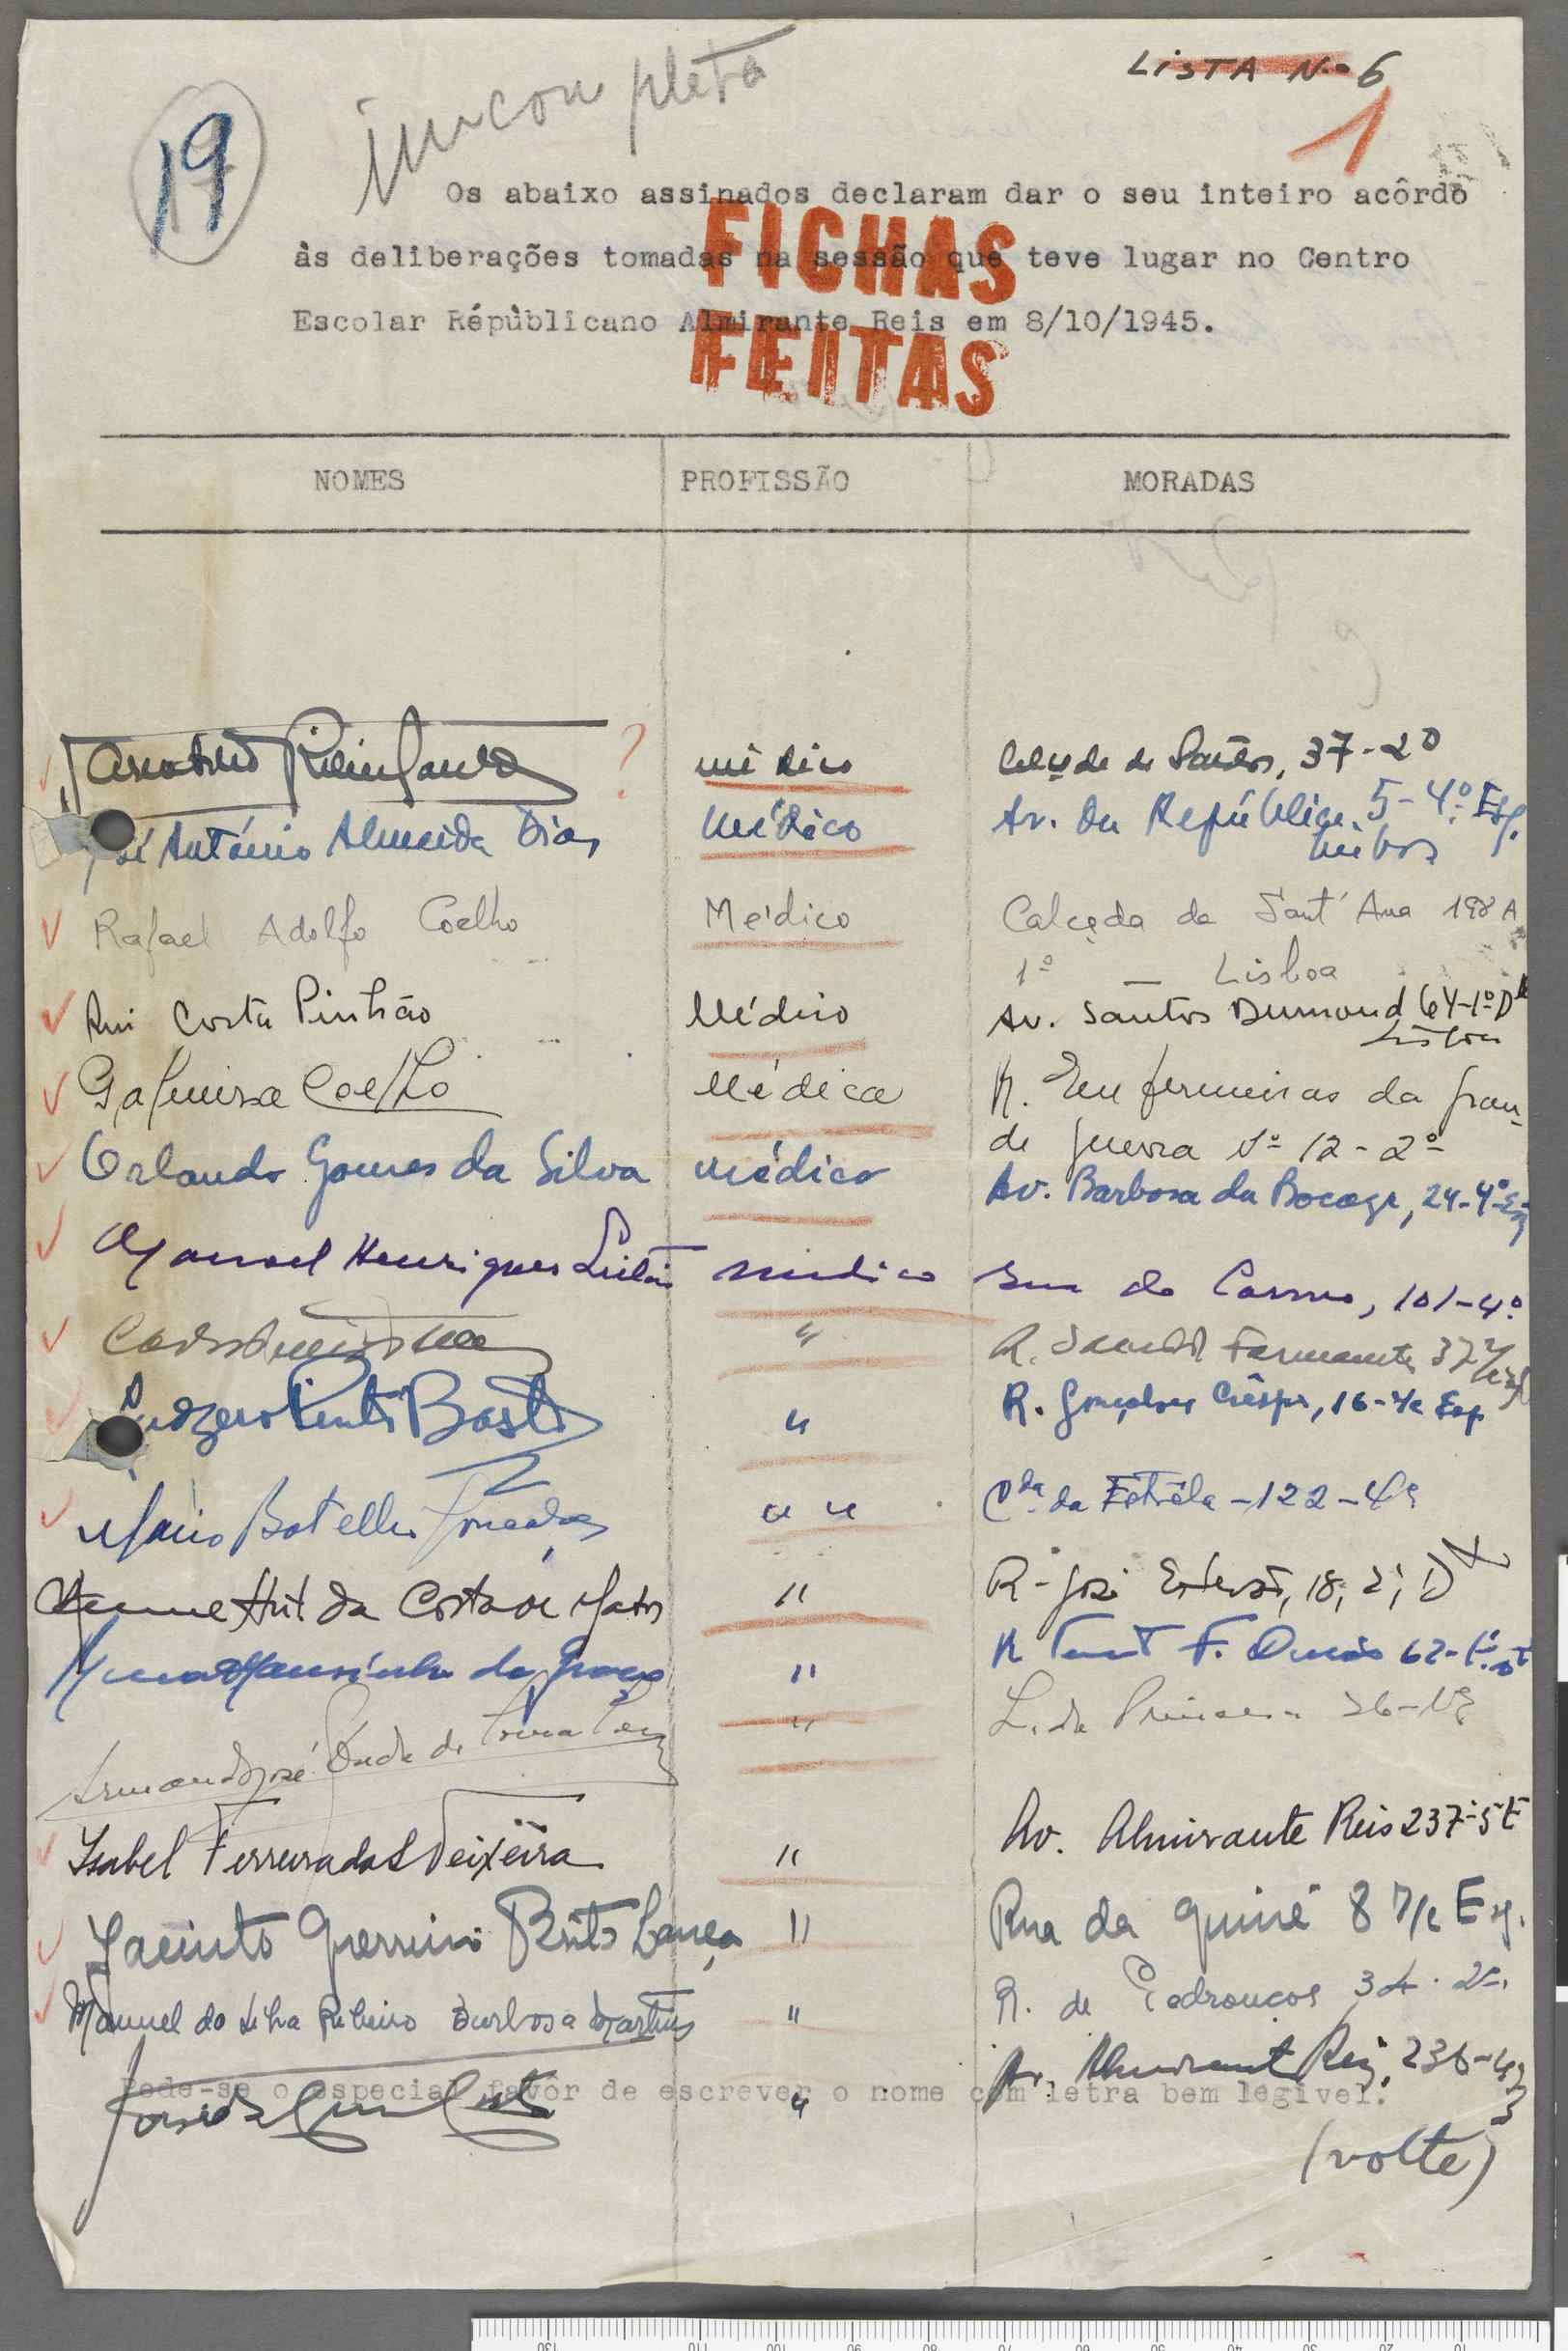 LISTA N.º 6
19
incompleta
1
Os abaixo assinados declaram dar o seu inteiro acôrdo
às deliberações tomadas na sessão que teve lugar no Centro
Escolar Répùblicano Almirante Reis em 8/10/1945.
FICHAS
FEITAS
NOMES PROFISSÃO MORADAS
? médico 37-2º
José António Almeida Dias Médico Av. da República, 5-4º Esq.
Lisboa
Rafael Adolfo Coelho Médico Calçada de Sant'Ana 198 A
1º — Lisboa
Rui Costa Pinhão Médico Av. Santos Dumond 64-1º Dt
Lisboa
Coelho Médica R. Enfermeiras da Gran-
de Guerra Nº 12-2º
Orlando Gomes da Silva médico Av. Barbosa du Bocage, 24-4º Esq
Manuel Henriques Leitão médico Rua do Carmo, 101-4º
" R. 37
Pinto Basto " R. Gonçalves Crêspo, 16-r/c Esq
Mário Botelho " " Cda da Estrêla - 122 - 4º
da Costa de Matos " R. José Estevão, 18, 2º, D
da Graça " R 62-1º
Armando José " L. da 26-1º
Isabel Ferreira da S Teixeira " Av. Almirante Reis 237-5º E
Jacinto Guerreiro Brito Lança " Rua da Guiné 8 r/c Esq.
Manuel da Silva Ribeiro Barbosa Martins " R. de Pedrouços 34. 2º.
" Av. Almirante Reis, 236-4º
Pede-se o especial favôr de escrever o nome com letra bem legível.
(volte)